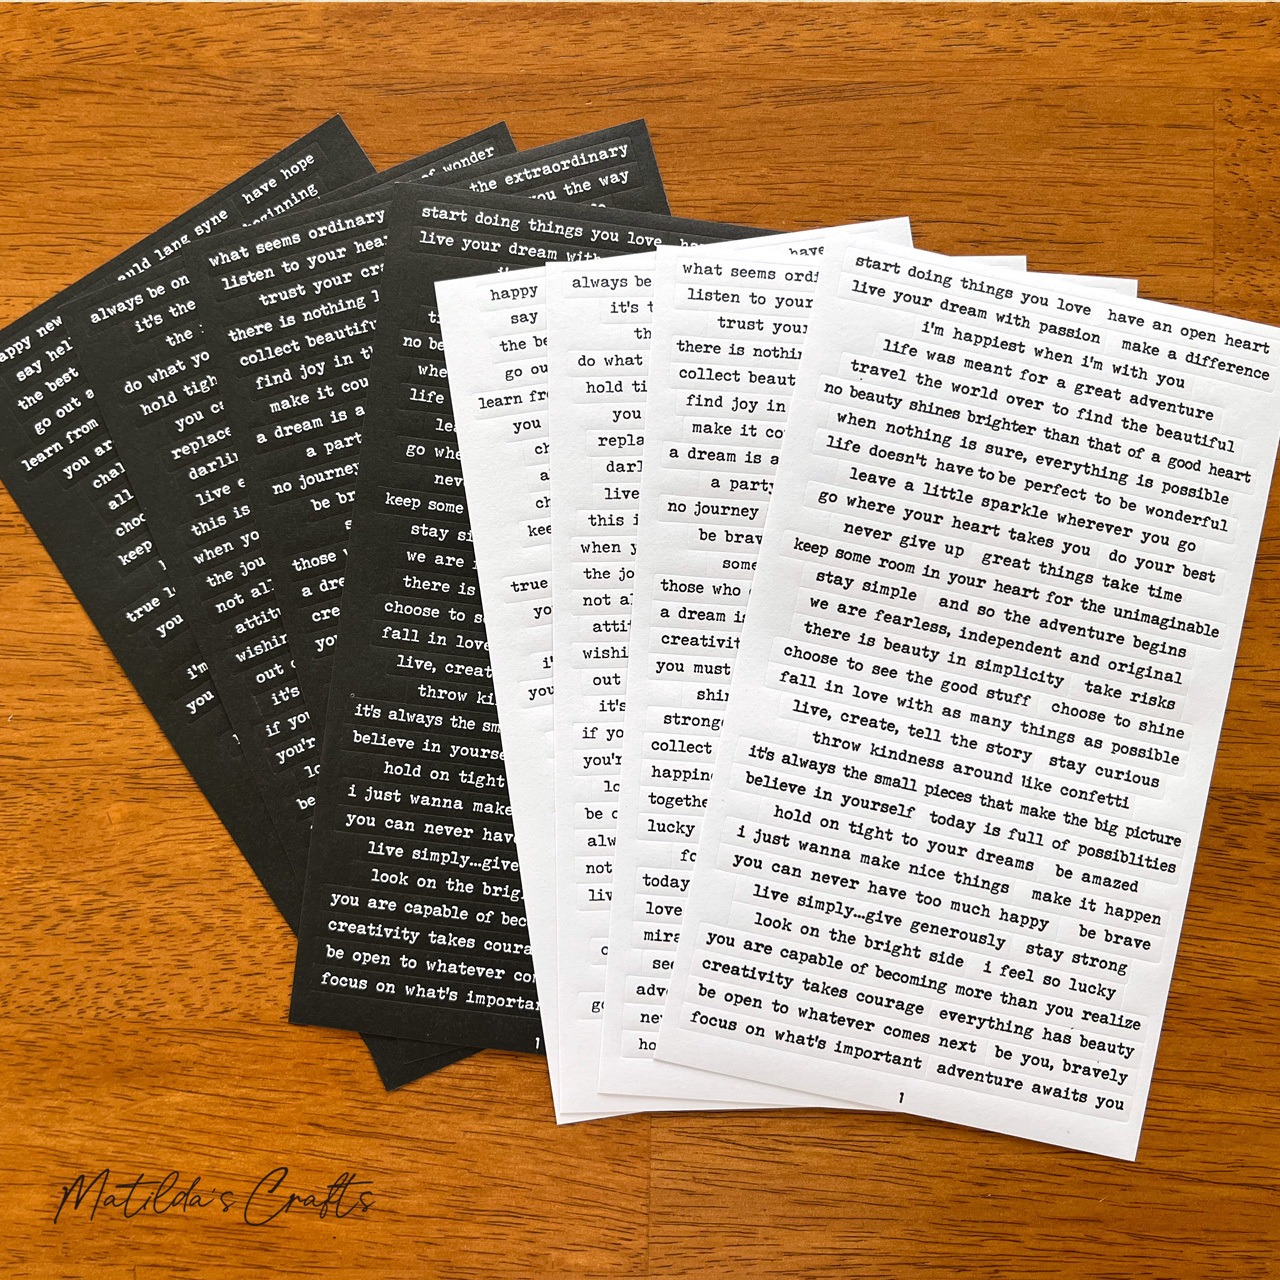 have hope
beginning
auld lang syne
happy new
say hel
the best
go out a
learn from
you ar
chal
all
choo
keep
true l
you
i'm
you
of wonder
always be on
it's the
the
do what yo
hold tigh
you ca
replace
darlin
live e
this is
when yo
the jou
not al
attitu
wishin
out o
it's
if you
you'r
lo
be
the extraordinary
you the way
what seems ordinary
listen to your hear
trust your cra
there is nothing l
collect beautifu
find joy in th
make it cou
a dream is a
a part
no journey
be br
s
those w
a dre
cre
yo
start doing things you love
live your dream with
no be
whe
life
lea
go whe
nev
keep some
stay si
we are
there is
choose to s
fall in love
live, creat
throw ki
it's always the sm
believe in yourse
hold on tight
i just wanna make
you can never have
live simply...give
look on the brig
you are capable of bec
creativity takes coura
be open to whatever co
focus on what's importan
1
have
happy
say
the be
go ou
learn fr
you
ch
a
ch
kee
true
yo
i'
you
always be
it's t
th
do what
hold ti
you
repla
darl
live
this i
when y
the jo
not al
atti
wishi
out
it's
if yo
you'r
lo
be o
alw
not
liv
go
what seems ordi
listen to your
trust your
there is nothin
collect beaut
find joy in
make it co
a dream is a
a party
no journey
be brav
some
those who
a dream is
creativit
you must
shin
strong
collect
happin
togethe
lucky
fo
today
love
mira
see
adve
ne
ho
start doing things you love have an open heart
live your dream with passion make a difference
i'm happiest when i'm with you
life was meant for a great adventure
travel the world over to find the beautiful
no beauty shines brighter than that of a good heart
when nothing is sure, everything is possible
life doesn't have to be perfect to be wonderful
leave a little sparkle wherever you go
go where your heart takes you do your best
never give up great things take time
keep some room in your heart for the unimaginable
stay simple and so the adventure begins
we are fearless, independent and original
there is beauty in simplicity take risks
choose to see the good stuff choose to shine
fall in love with as many things as possible
live, create, tell the story stay curious
throw kindness around like confetti
it's always the small pieces that make the big picture
believe in yourself today is full of possiblities
hold on tight to your dreams be amazed
i just wanna make nice things make it happen
you can never have too much happy be brave
live simply...give generously stay strong
look on the bright side i feel so lucky
you are capable of becoming more than you realize
creativity takes courage everything has beauty
be open to whatever comes next be you, bravely
focus on what's important adventure awaits you
1
Matilda's Crafts